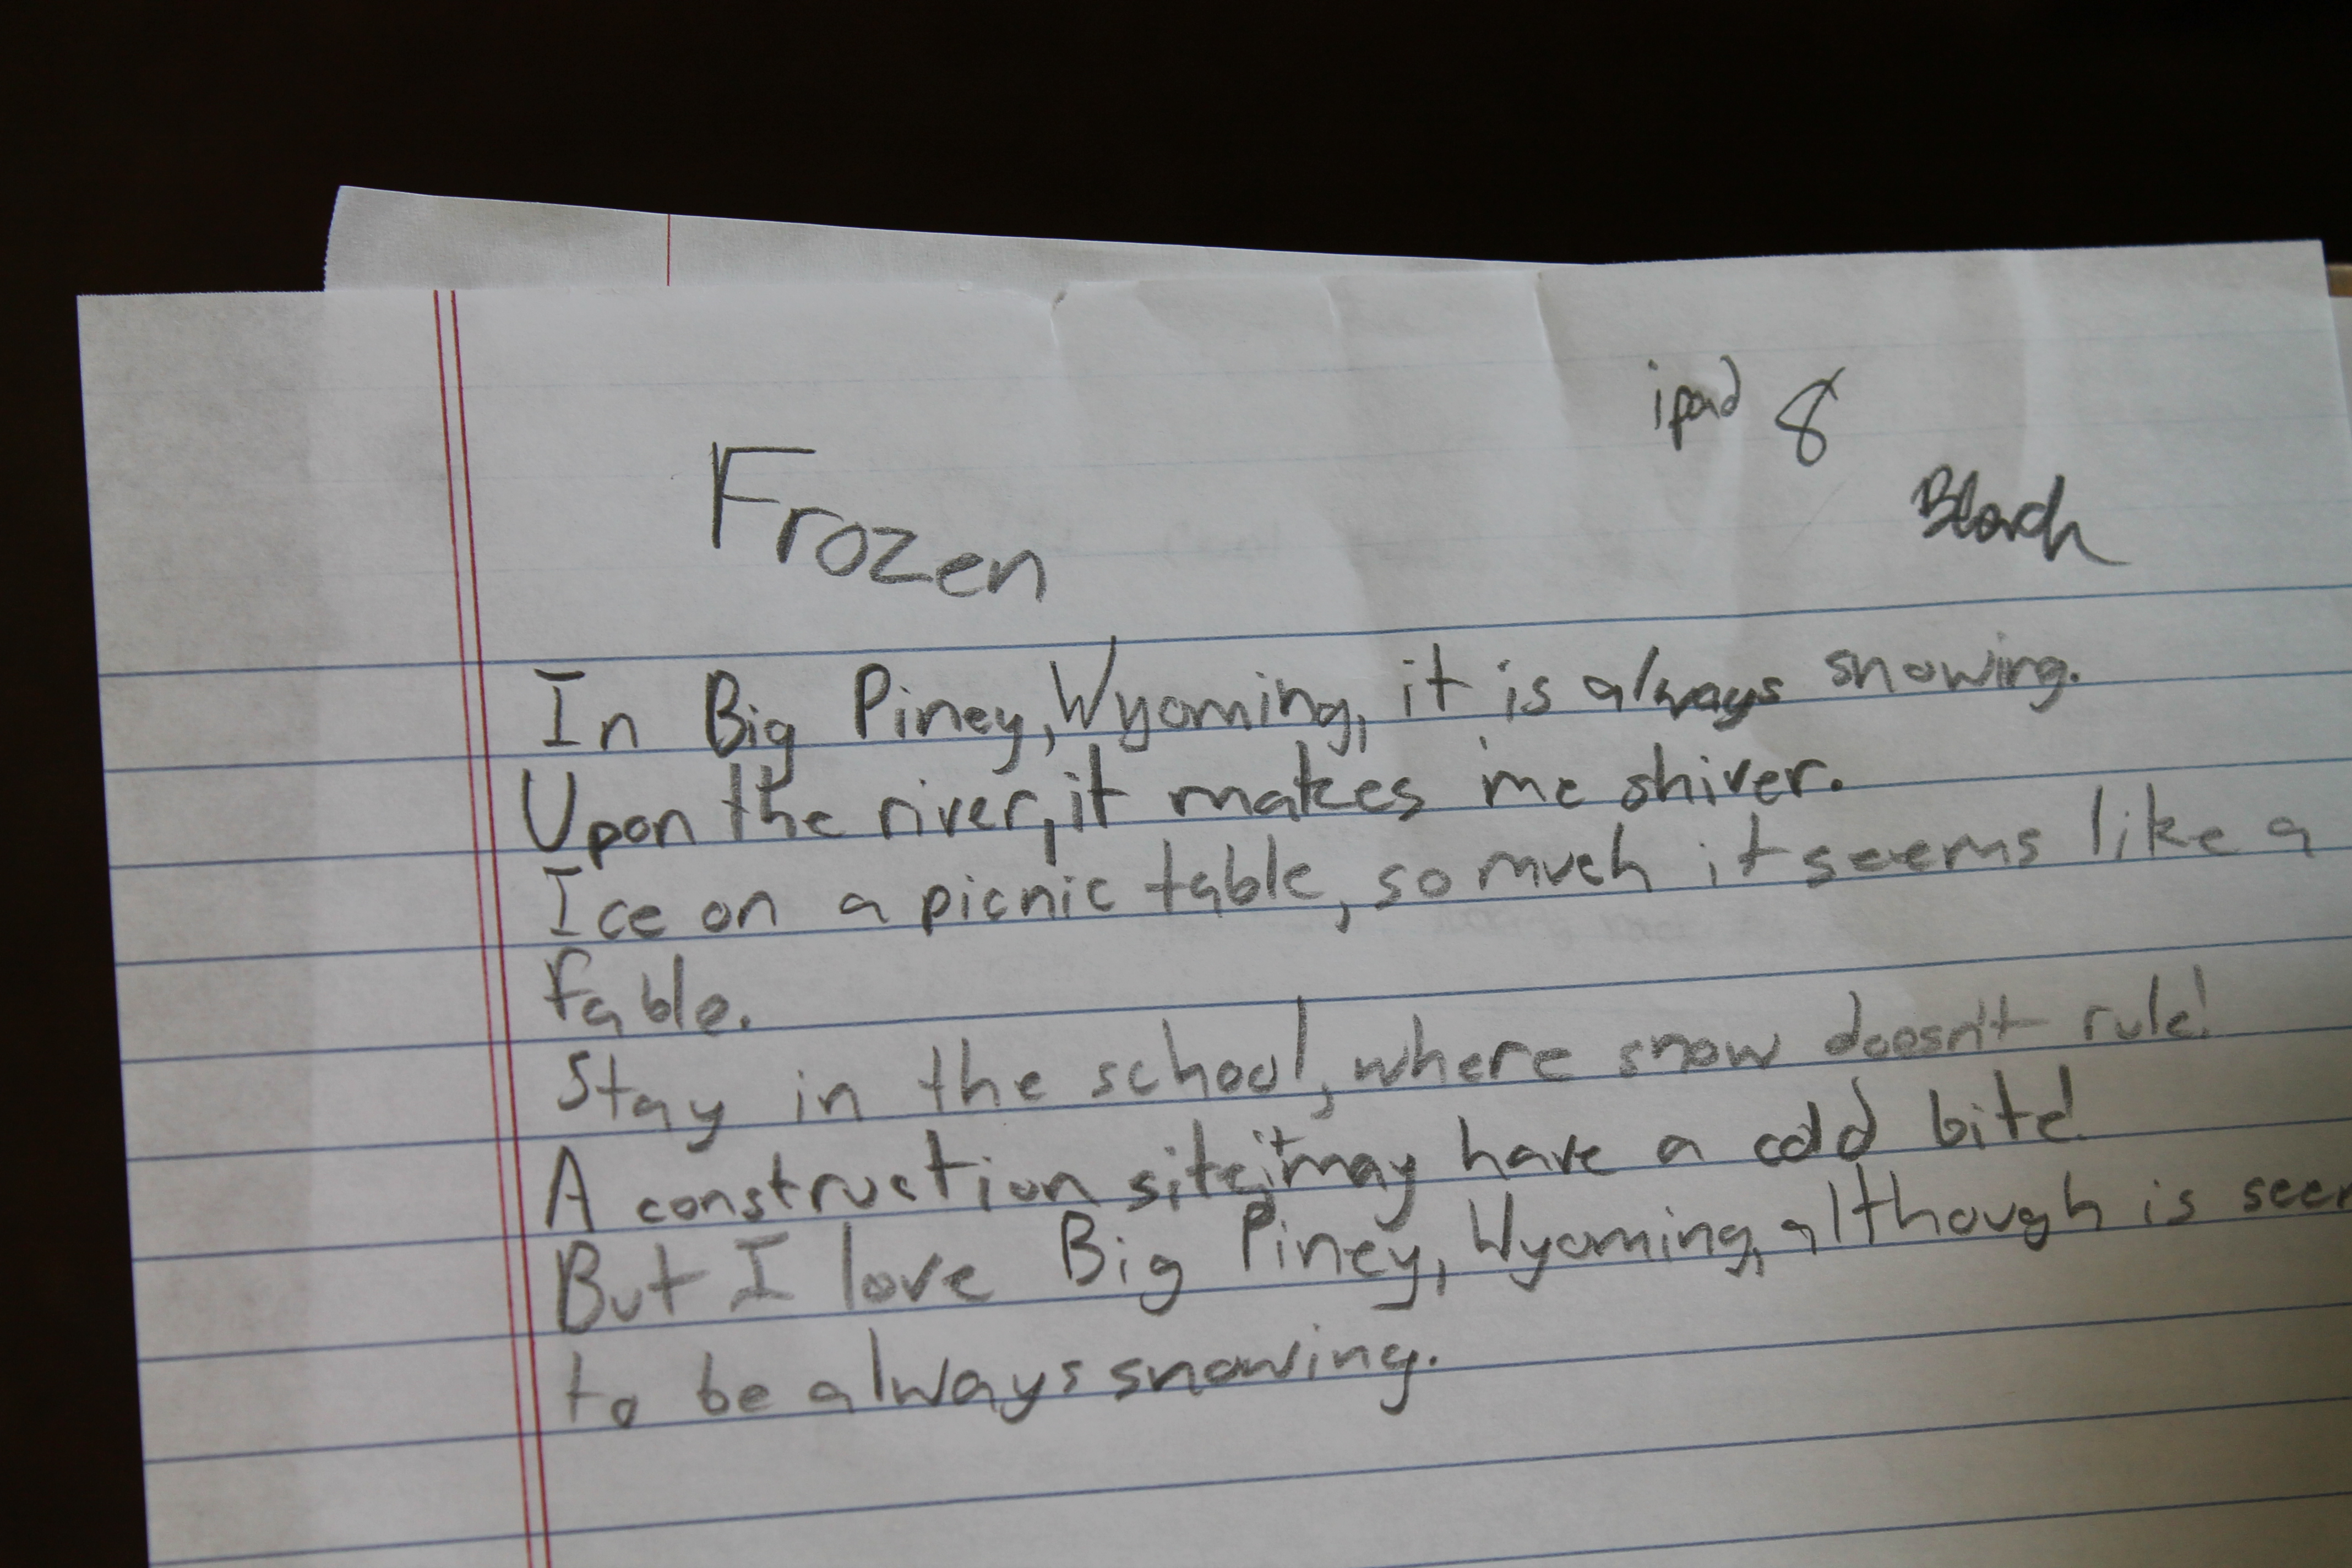 ipad 8
Frozen
In Big Piney, Wyoming, it is always snowing.
Upon the river, it makes me shiver.
Ice on a picnic table, so much it seems like a
fable.
Stay in the school, where snow doesn't rule!
A construction site, it may have a cold bite!
But I love Big Piney, Wyoming, although is
to be always snowing.